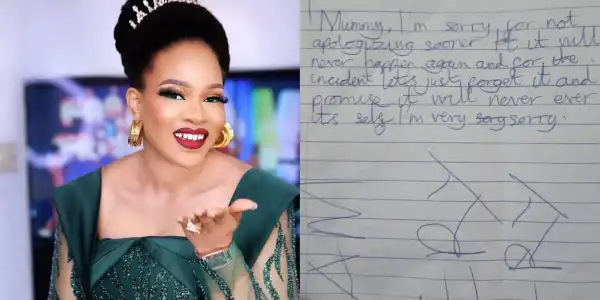 Mummy, I'm sorry for not
apologizing sooner. It it will
never happen again and for the
incident lets just forget it and
promise it will never ever
its self I'm very sorry sorry.